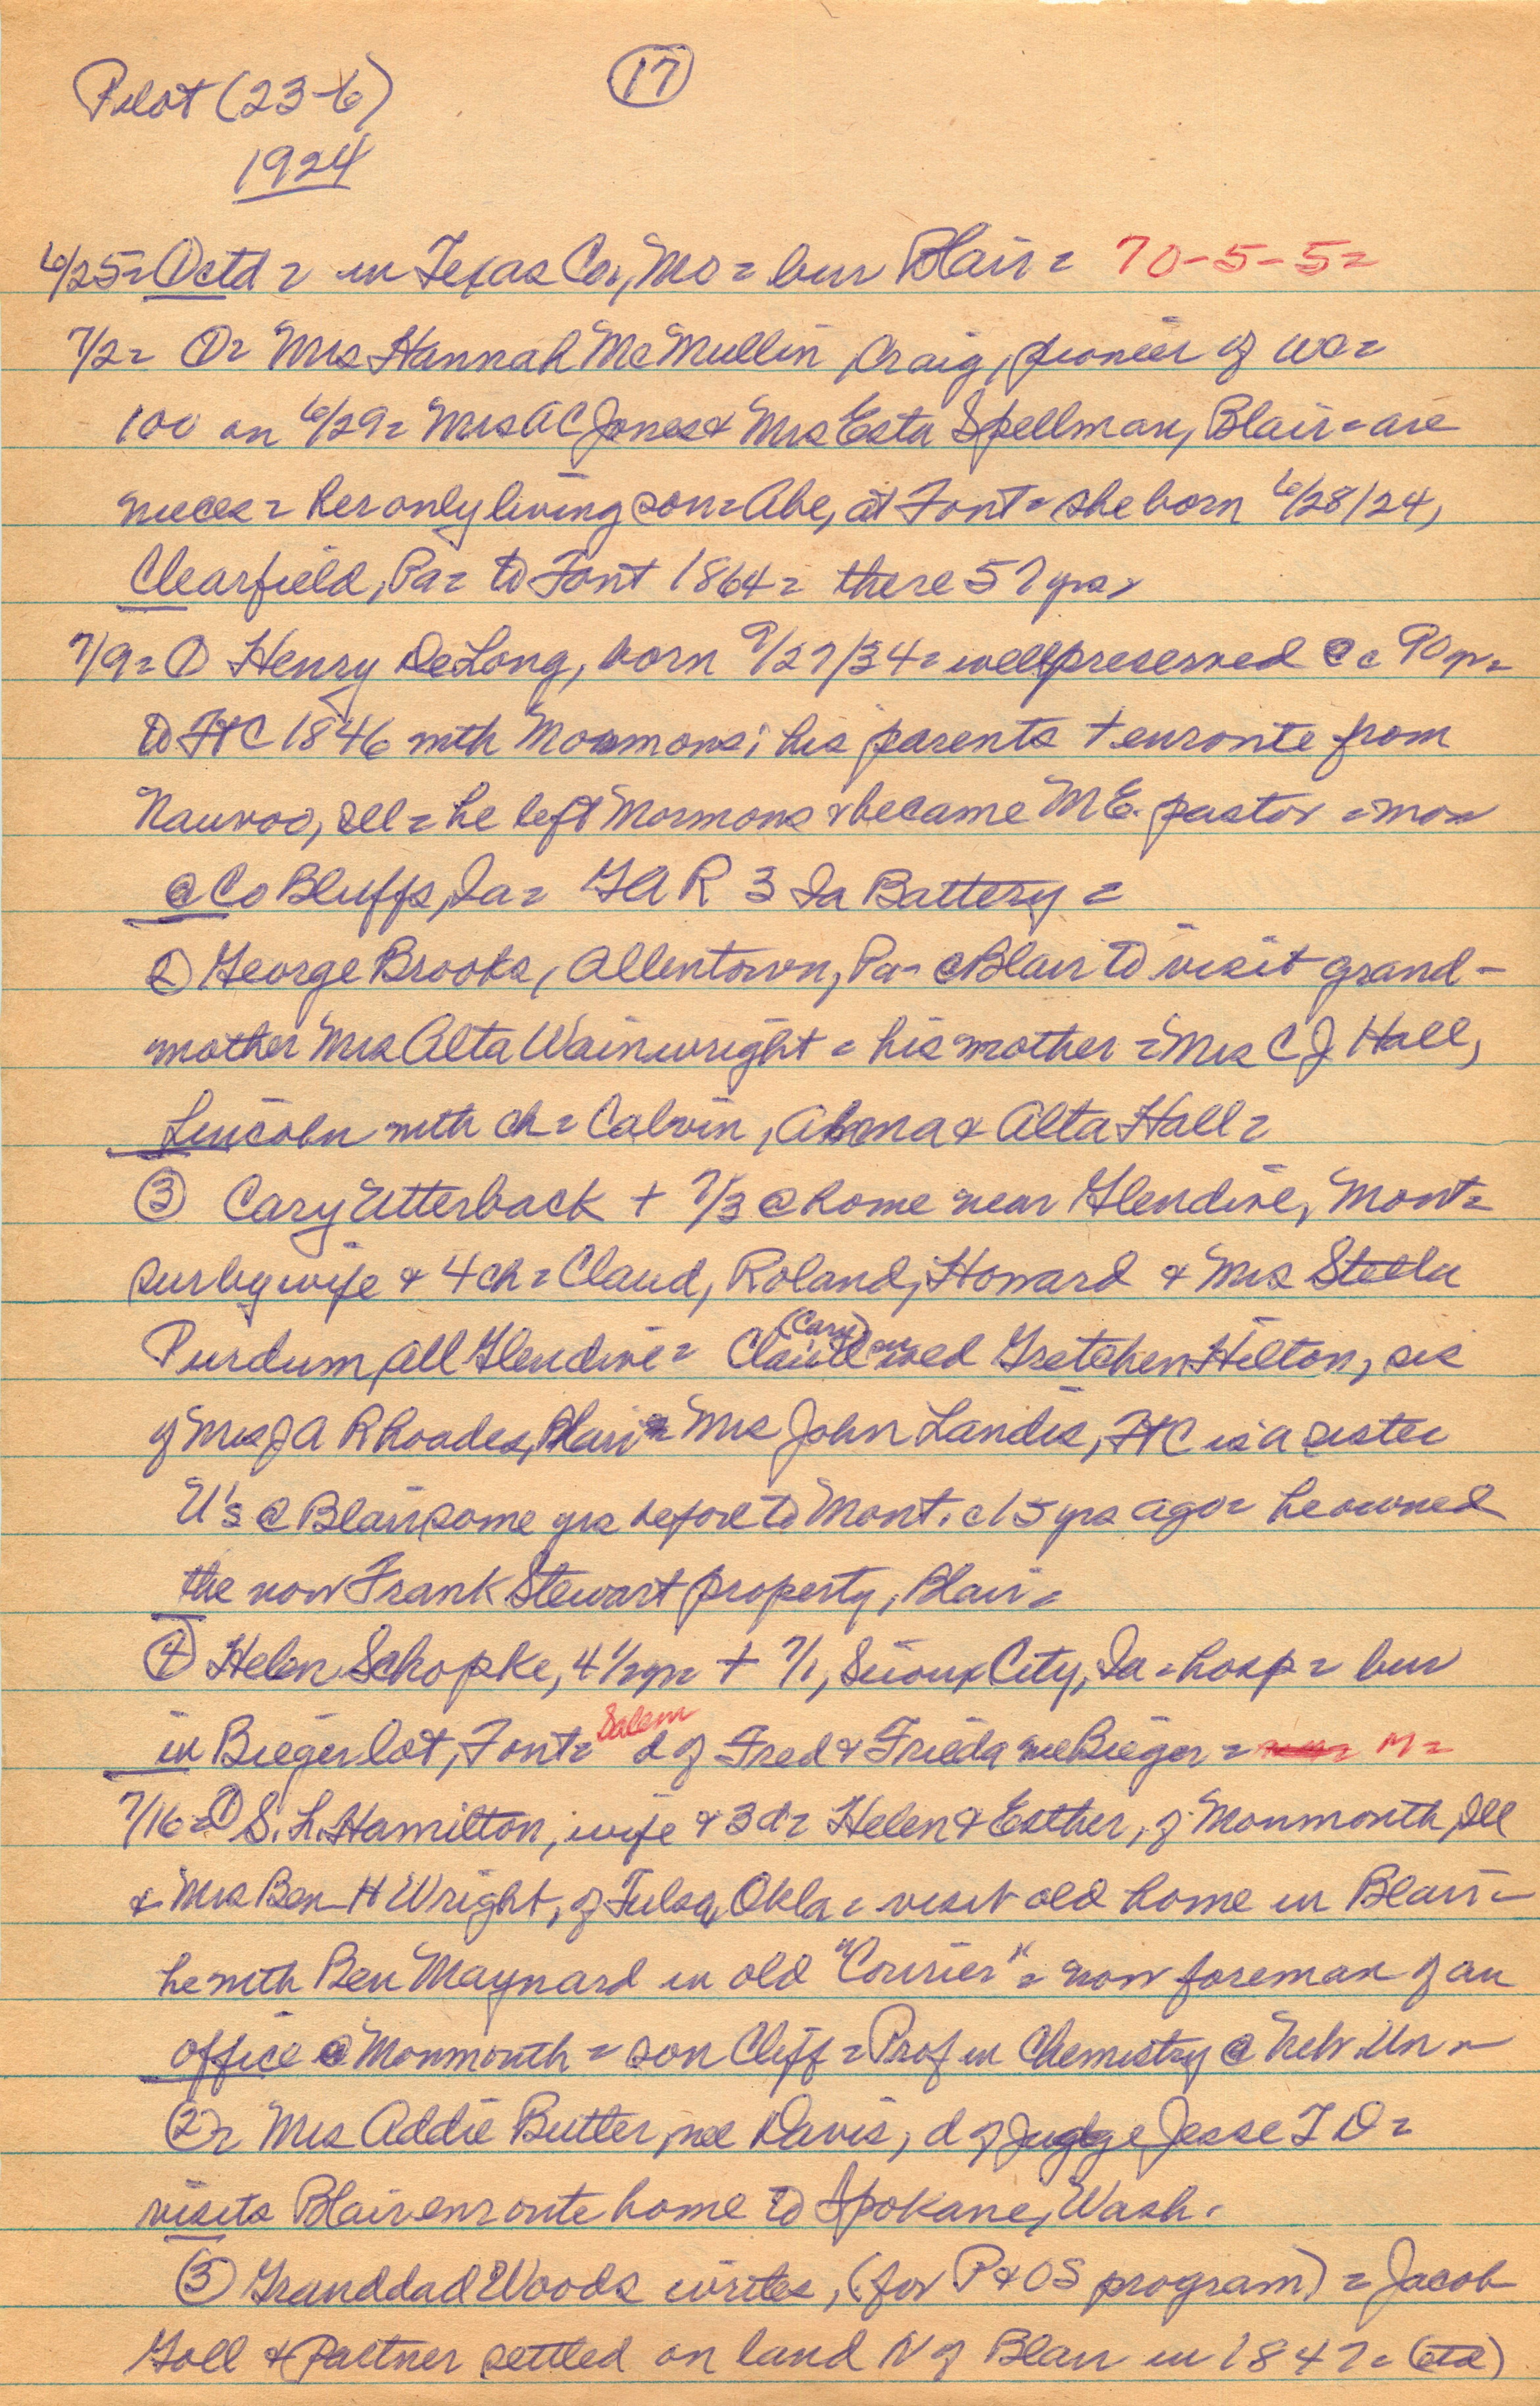 Pilot (23-6)
17
1924
6/25= ① ctd = in Texas Co, Mo = bur Blair = 70-5-5=
7/2= ①= Mrs Hannah McMullin, Craig, pioneer of WC=
100 on 6/29= Mrs AC Jones & Mrs Esta Spellman, Blair = are
nieces = her only living son = Abe, at Font = she born 6/28/24,
Clearfield, Pa = to Font 1864 = there 57 yrs,
7/9= ① Henry DeLong, born 9/27/34 = well preserved @ c 90 yr =
to FtC 1846 with Mormons; his parents + enroute from
Nauvoo, Ill = he left Mormons & became M E. pastor = now
@ Co Bluffs, Ia = GAR 3 Ia Battery =
② George Brooks, Allentown, Pa - @ Blair to visit grand-
mother Mrs Alta Wainwright = his mother = Mrs C J Hall,
Lincoln with ch = Calvin, & Alta Hall =
③ Cary Utterback + 7/3 @ home near Glendive, Mont =
sur by wife & 4 ch = Claud, Roland, Howard & Mrs Stella
Purdum, all Glendive = (Cary) wed Gretchen Hilton, sis
of Mrs J A Rhoades, Blair = Mrs John Landis, FtC is a sister
U's @ Blair some yrs before to Mont. c 15 yrs ago = he owned
the now Frank Stewart property, Blair =
④ Helen Schopke, 4 1/2 yr = + 7/1, Sioux City, Ia = hosp = bur
in Bieger lot, Font = Salem d of Fred & Frieda nee Bieger = M =
7/16= ① S. L. Hamilton, wife & 3 d = Helen & Esther, of Monmouth, Ill
& Mrs Ben H Wright, of Tulsa, Okla = visit old home in Blair =
he with Ben Maynard in old "Courier" = now foreman of an
office @ Monmouth = son Cliff = Prof in Chemistry @ Neb. Un =
②= Mrs Addie Butler, nee Davis, d of Judge Jesse T D =
visits Blair enroute home to Spokane, Wash.
③ Granddad Woods writes, (for P & OS program) = Jacob
Goll & Partner settled on land N of Blair in 1847 = (ctd)